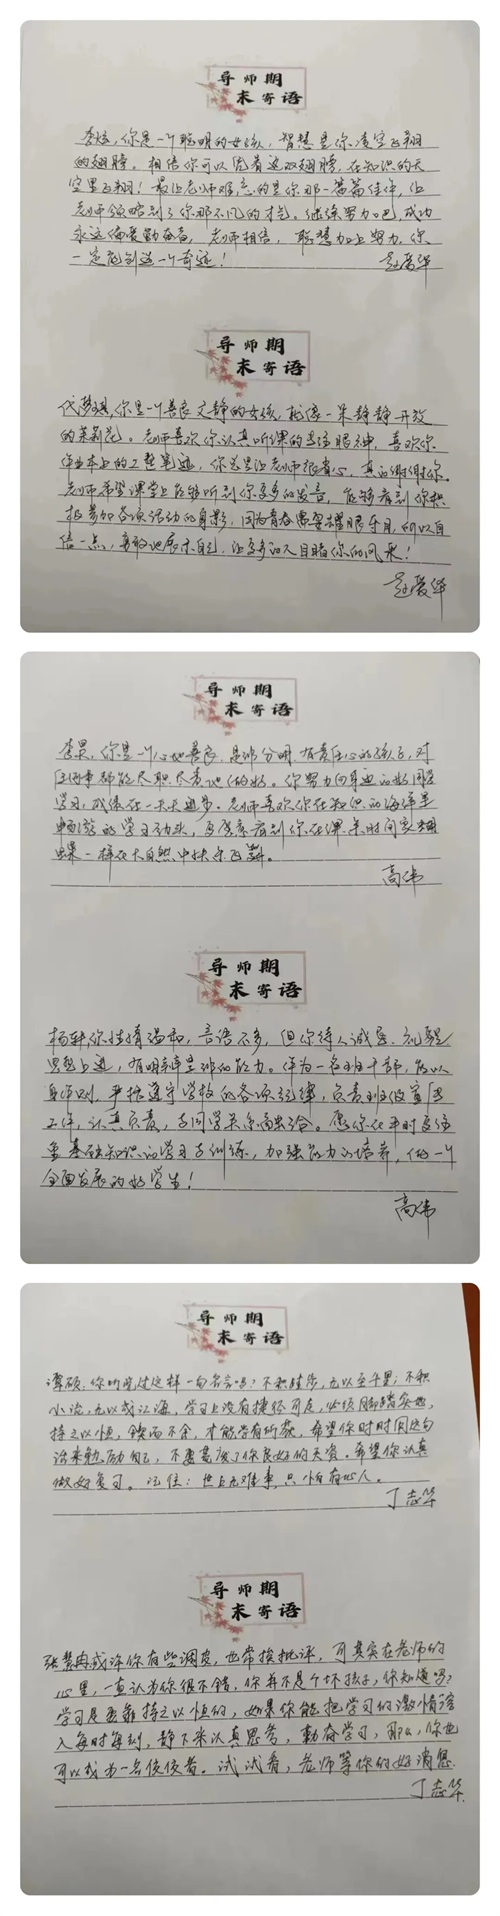 导师期
末寄语
李炫，你是一个聪明的女孩，智慧是你凌空飞翔
的翅膀。相信你可以凭着这双翅膀，在知识的天
空里飞翔！最让老师难忘的是你那一篇篇佳作，让
老师领略到了你那不凡的才气。继续努力吧，成功
永远偏爱勤奋者，老师相信，聪慧加上努力，你
一定能创造一个奇迹！
赵爱华
导师期
末寄语
代梦琪，你是一个善良文静的女孩，就像一朵静静开放
的茉莉花。老师喜欢你认真听课的专注眼神，喜欢你
作业本上的工整笔迹，你总是让老师很省心，真的谢谢你。
老师希望课堂上能够听到你更多的发言，能够看到你积
极参加各项活动的身影，因为青春需要耀眼夺目，所以自
信一点，勇敢地展示自己，让更多的人目睹你的风采！
赵爱华
导师期
末寄语
李昊，你是一个心地善良、是非分明、有责任心的孩子，对
任何事都能尽职尽责地做好。你努力向身边的好同学
学习，成绩在一天天进步。老师喜欢你在知识的海洋里
畅游的学习劲头，更愿意看到你在课余时间像蝴
蝶一样在大自然中快乐飞舞。
高伟
导师期
末寄语
杨轩，你性情温和，言语不多，但你待人诚恳，
思想上进，有明辨是非的能力。作为一名班干部，能以
身作则，严格遵守学校的各项纪律，负责班级宣传
工作，认真负责，与同学关系融洽。愿你在平时更注
重基础知识的学习与训练，加强能力的培养，做一个
全面发展的好学生！
高伟
导师期
末寄语
谭硕，你听说过这样一句名言吗？不积跬步，无以至千里；不积
小流，无以成江海，学习上没有捷径可走，必须脚踏实地，
持之以恒，锲而不舍，才能学有所获，希望你时时用这句
话来勉励自己，不要荒废了你良好的天资。希望你认真
做好复习。记住：世上无难事，只怕有心人。
丁志华
导师期
末寄语
张慧冉或许你有些调皮，也常挨批评，可其实在老师的
心里，一直认为你很不错，你并不是个坏孩子，你知道吗？
学习是要靠持之以恒的，如果你能把学习的激情溶
入每时每刻，静下来认真思考，勤奋学习，那么，你也
可以成为一名佼佼者。试试看，老师等你的好消息。
丁志华